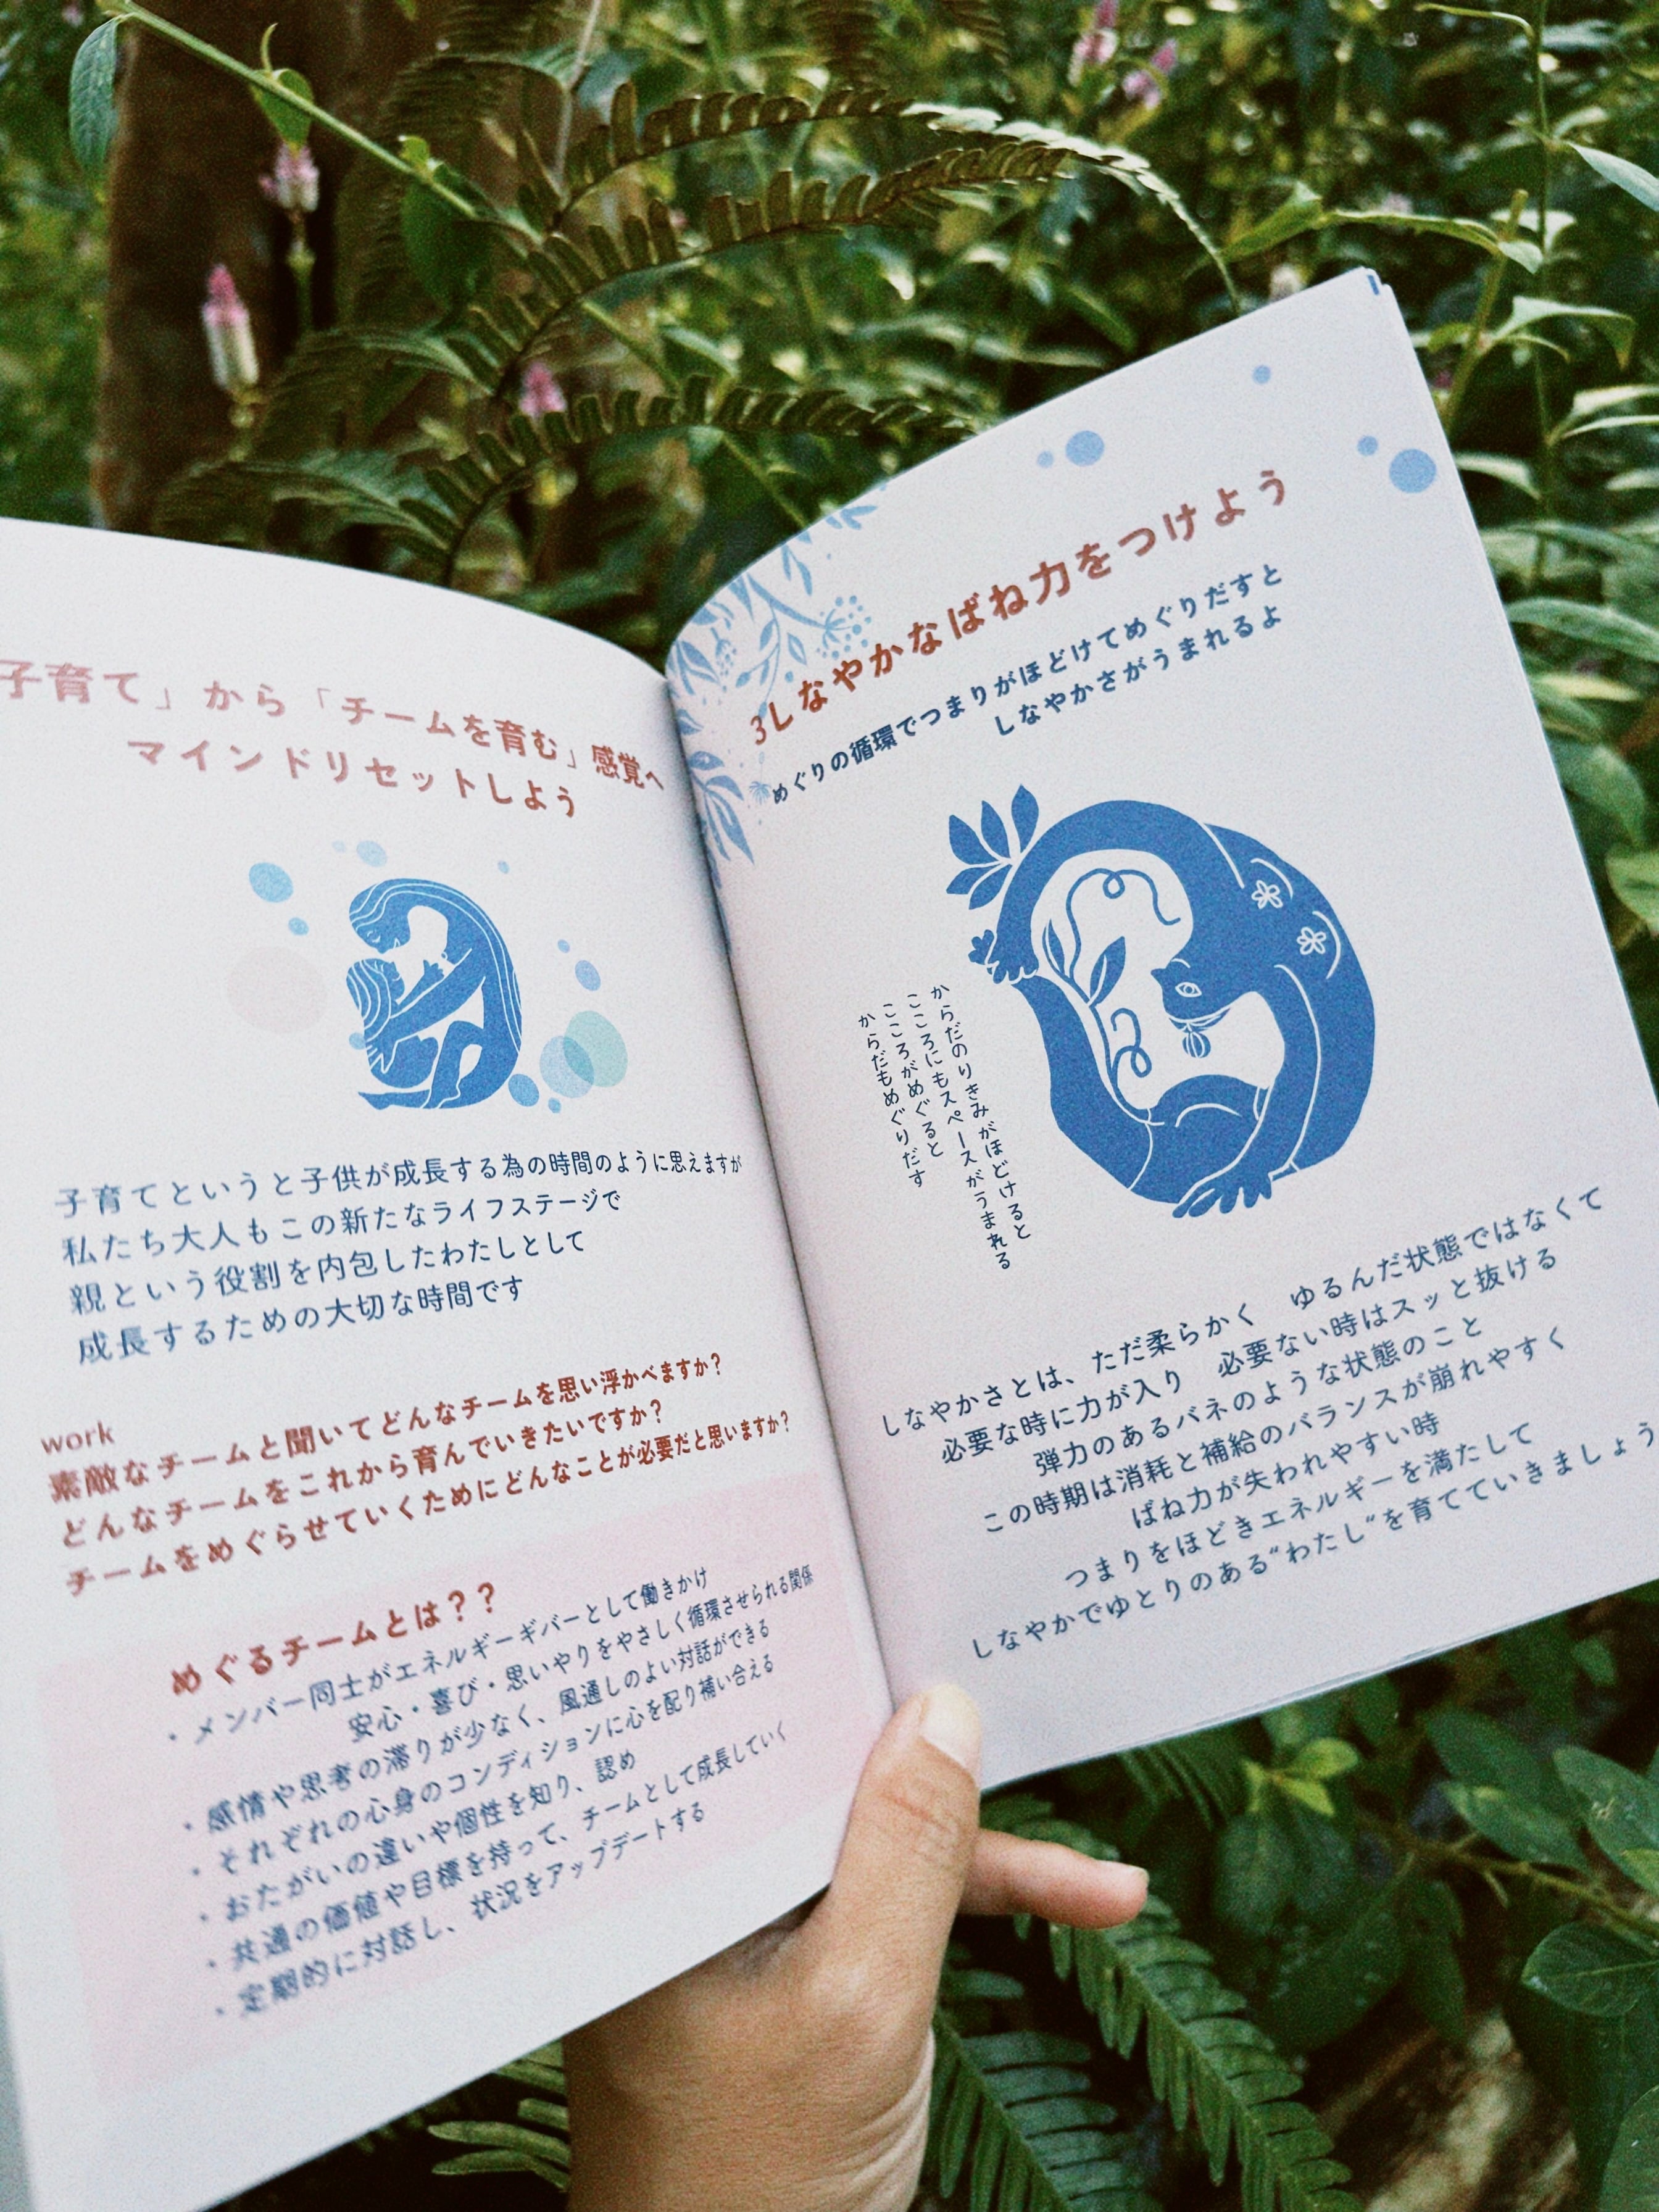 子育て」から「チームを育む」感覚へ
マインドリセットしよう
子育てというと子供が成長する為の時間のように思えますが
私たち大人もこの新たなライフステージで
親という役割を内包したわたしとして
成長するための大切な時間です
work
素敵なチームと聞いてどんなチームを思い浮かべますか?
どんなチームをこれから育んでいきたいですか?
チームをめぐらせていくためにどんなことが必要だと思いますか?
めぐるチームとは??
・メンバー同士がエネルギーギバーとして働きかけ
安心・喜び・思いやりをやさしく循環させられる関係
・感情や思考の滞りが少なく、風通しのよい対話ができる
・それぞれの心身のコンディションに心を配り補い合える
・おたがいの違いや個性を知り、認め
・共通の価値や目標を持って、チームとして成長していく
・定期的に対話し、状況をアップデートする
3しなやかなばね力をつけよう
めぐりの循環でつまりがほどけてめぐりだすと
しなやかさがうまれるよ
からだのりきみがほどけると
こころにもスペースがうまれる
こころがめぐると
からだもめぐりだす
しなやかさとは、ただ柔らかく　ゆるんだ状態ではなくて
必要な時に力が入り　必要ない時はスッと抜ける
弾力のあるバネのような状態のこと
この時期は消耗と補給のバランスが崩れやすく
ばね力が失われやすい時
つまりをほどきエネルギーを満たして
しなやかでゆとりのある“わたし“を育てていきましょう